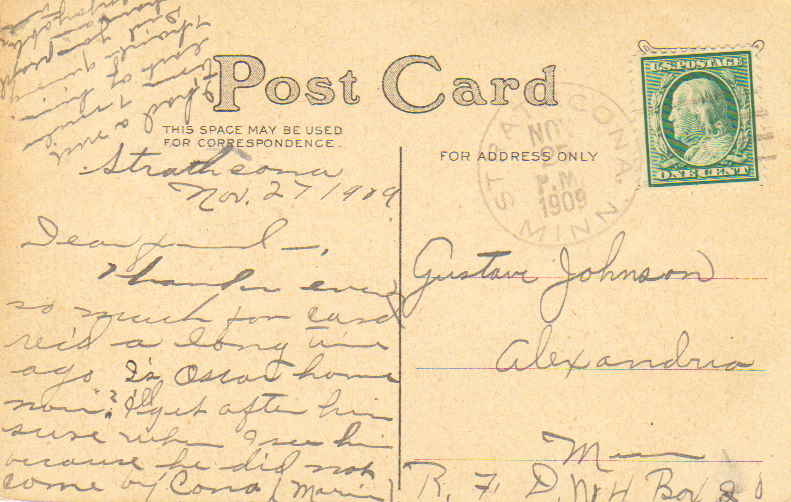 Post Card
THIS SPACE MAY BE USED
FOR CORRESPONDENCE.
FOR ADDRESS ONLY
U.S. POSTAGE
ONE CENT
STRATHCONA, MINN.
NOV
P.M.
1909
Strathcona
Nov. 27 1909
Dear friend —,
Thanks ever
so much for card
rec'd a long time
ago Is Oscar home
now? I'll get after him
sure when I see him
because he did not
come by Cona (Marin)
I had a
time
east of
Thanks
you people
Gustave Johnson
Alexandria
Minn
R. F. D. No 4 Box 81